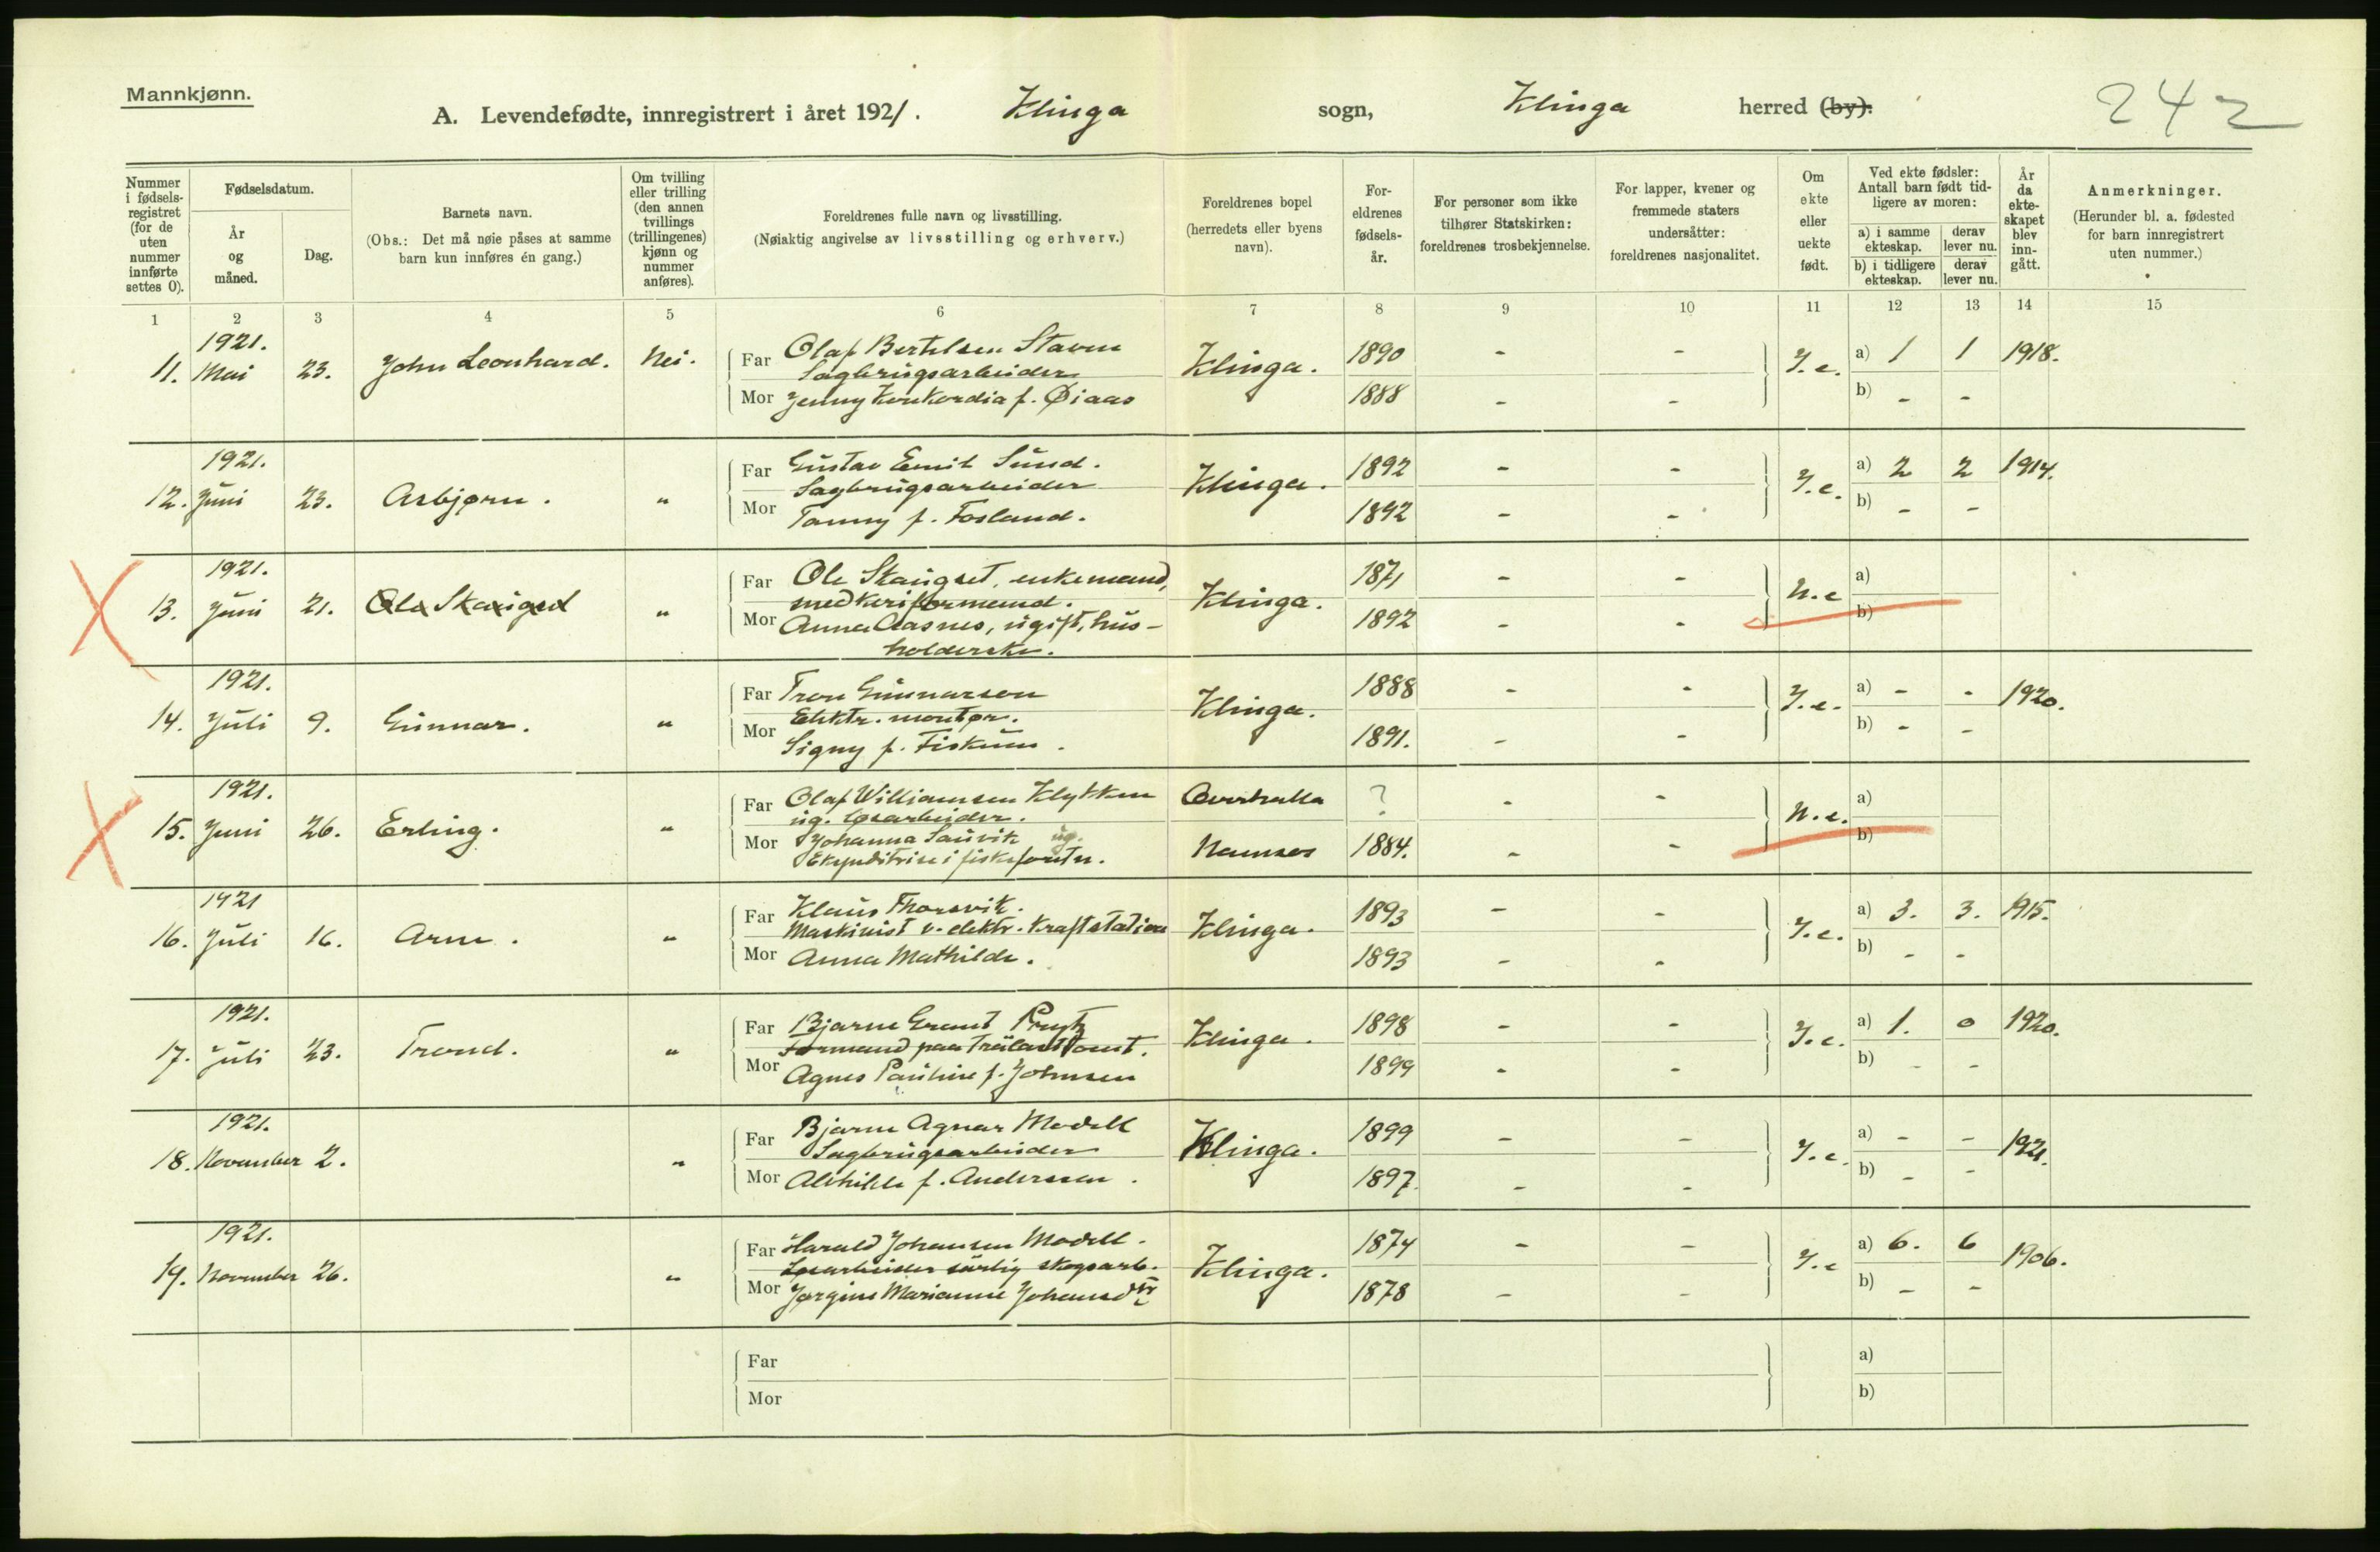 Mannkjønn.
A. Levendefødte, innregistrert i året 1921. Klinga sogn, Klinga herred (by).
242
Nummer i fødselsregistret (for de uten nummer innførte settes 0).
Fødselsdatum.
År og måned.
Dag.
Barnets navn.
(Obs.: Det må nøie påses at samme barn kun innføres én gang.)
Om tvilling eller trilling (den annen tvillings (trillingenes) kjønn og nummer anføres).
Foreldrenes fulle navn og livsstilling.
(Nøiaktig angivelse av livsstilling og erhverv.)
Foreldrenes bopel (herredets eller byens navn).
Foreldrenes fødselsår.
For personer som ikke tilhører Statskirken: foreldrenes trosbekjennelse.
For lapper, kvener og fremmede staters undersåtter: foreldrenes nasjonalitet.
Om ekte eller uekte født.
Ved ekte fødsler: Antall barn født tidligere av moren:
a) i samme ekteskap. derav lever nu.
b) i tidligere ekteskap. derav lever nu.
År da ekteskapet blev inngått.
Anmerkninger.
(Herunder bl. a. fødested for barn innregistrert uten nummer.)
1 2 3 4 5 6 7 8 9 10 11 12 13 14 15
1921.
11. Mai 23. John Leonhard. Nei. Far Olaf Bertelsen Staven Klinga. 1890 - - Y.e. a) 1 1 1918.
Sagbrugsarbeider
Mor Jenny Konkordia f. Øiaas 1888 - - b) - -
1921.
12. Juni 23. Asbjørn. " Far Gustav Emil Sund. Klinga. 1892 - - Y.e. a) 2 2 1914.
Sagbrugsarbeider
Mor Fanny f. Fosland. 1892 - - b) - -
1921.
13. Juni 21. Ola Skauget " Far Ole Skauget, enkemand, Klinga. 1871 - - U.e a)
snedkeriformand.
Mor Anna Aasnes, ugift, hus- 1892 - - b)
holderske.
1921.
14. Juli 9. Gunnar. " Far Tron Gunnarson Klinga. 1888 - - Y.e. a) - - 1920.
Elektr. montør.
Mor Signy f. Fiskum. 1891. - - b) - -
1921.
15. Juni 26. Erling. " Far Olaf Williamsen Klykken Overhalla ? - - U.e. a)
ug. løsarbeider.
Mor Johanna Sauvik ug. Namsos 1884. - - b)
Ekspeditrise i fiskeforretn.
1921
16. Juli 16. Arne. " Far Klaus Thorsvik. Klinga. 1893 - - Y.e. a) 3. 3. 1915.
Maskinist v. elektr. Kraftstation
Mor Anna Mathilde. 1893 - - b) - -
1921.
17. Juli 23. Trond. " Far Bjarne Grant Prytz Klinga. 1898 - - Y.e. a) 1. 0 1920.
Formand paa Trælasttomt.
Mor Agnes Pauline f. Johnsen 1899 - - b) - -
1921.
18. November 2. " Far Bjarne Agnar Modell Klinga. 1899 - - Y.e. a) - - 1921.
Sagbrugsarbeider
Mor Alethilde f. Anderssen. 1897. - - b) - -
1921.
19. November 26. " Far Harald Johansen Modell. Klinga. 1874 - - Y.e a) 6. 6 1906.
Løsarbeider særlig skogsarb.
Mor Jørgine Marianne Johansdtr 1878 - - b) - -
Far a)
Mor b)